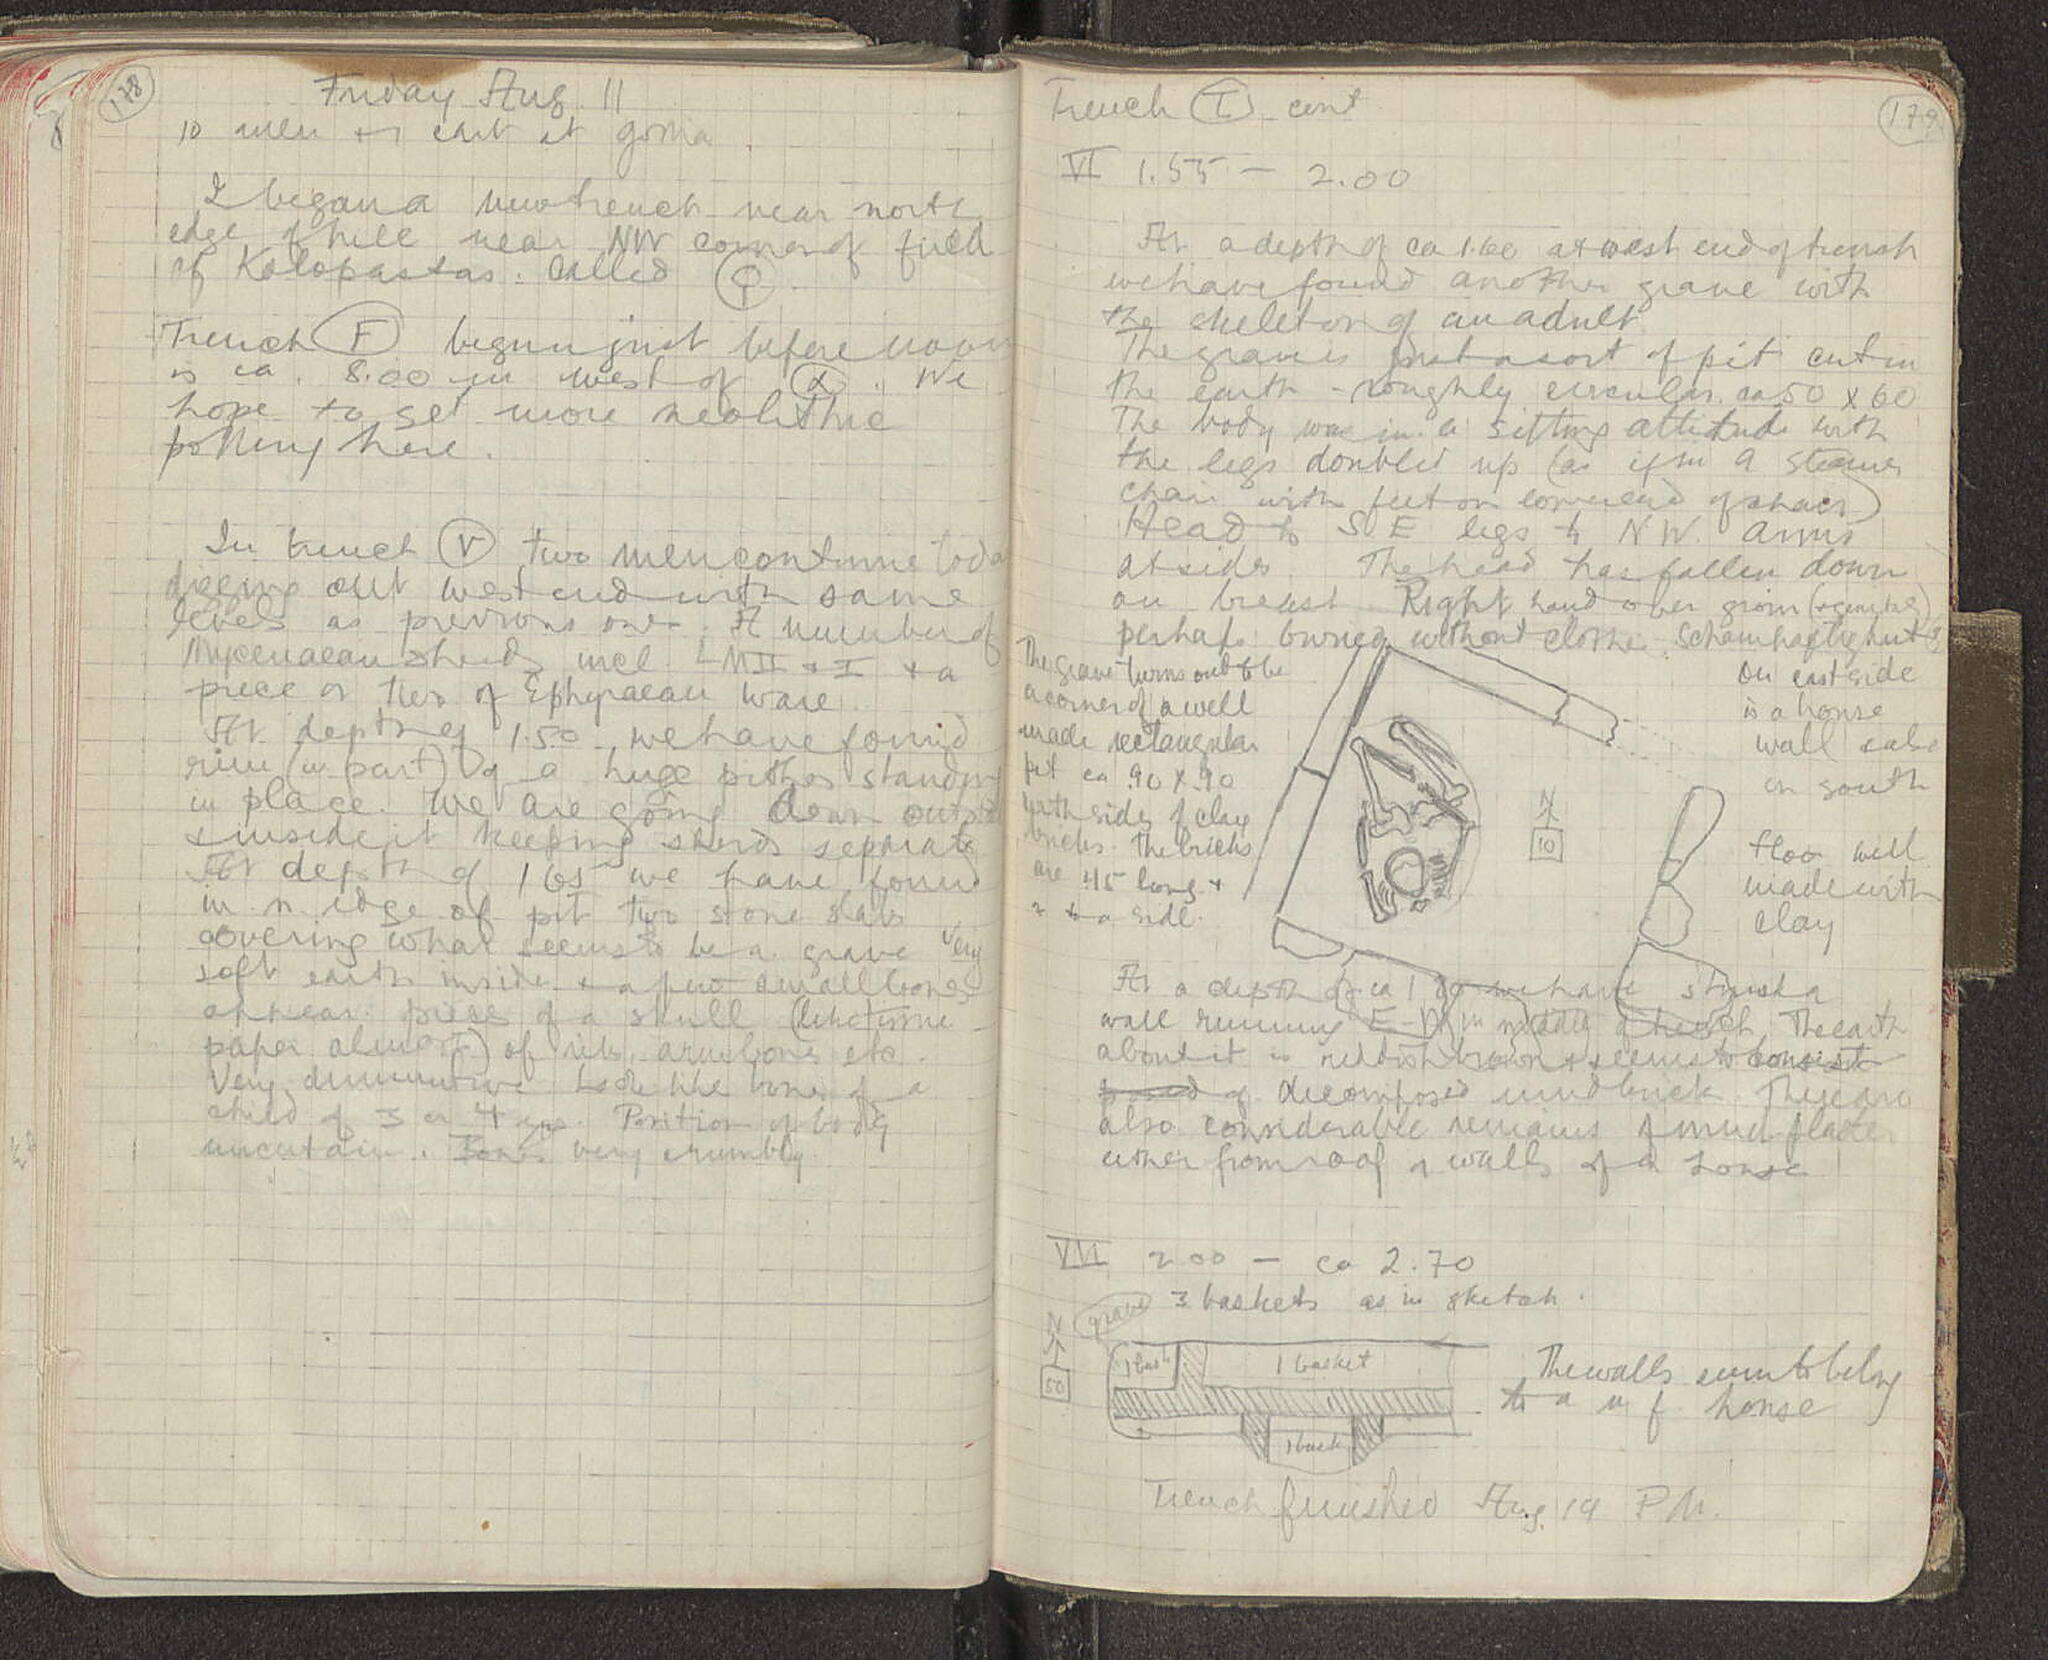 178
Friday Aug. 11
10 men + 1 cart at gonia
I began a new trench near north
edge of hill near NW corner of field
of Kolopastas. Called
Trench F begun just before noon
is ca. 8.00 m west of α. We
hope to get more neolithic
pottery here.
In trench V two men continue today
digging out west end with same
levels as previous one. A number of
Mycenaean sherds incl. LM II + I + a
piece or two of Ephyraean ware.
At depth of 1.50 we have found
rim (in part) of a huge pithos standing
in place. We are going down outside
& inside it keeping sherds separate
At depth of 1.65 we have found
in n. edge of pit two stone slabs
covering what seems to be a grave very
soft earth inside & a few small bones
appear. pieces of a skull
paper almost) of ribs, arm bones etc.
Very diminutive look like bones of a
child of 3 or 4 yrs. Position of body
uncertain. Bones very crumbly.
179
Trench I cont.
VI 1.55 – 2.00
At a depth of ca 1.60 at west end of trench
we have found another grave with
the skeleton of an adult.
The grave is just a sort of pit cut in
the earth – roughly circular. ca 50 x 60
The body was in a sitting attitude with
the legs doubled up (as if in a steamer
chair with feet on lower end of chair)
Head to S E legs to N W. arms
at sides. The head has fallen down
on breast. Right hand over groin (+ genitals)
perhaps buried without clothes. Schamhaftigkeit?
The grave turns out to be
a corner of a well
made rectangular
pit ca .90 x .90
with sides of clay
bricks. The bricks
are .45 long +
2 to a side.
N
10
On east side
is a house
wall + also
on south
floor well
made with
clay
At a depth of ca 1.80 we have struck a
wall running E–W in middle of trench. The earth
about it is reddish brown + seems to consist
of decomposed mud brick. There are
also considerable remains of mud plaster
either from roof or walls of a house
VII 2.00 – ca 2.70
3 baskets as in sketch.
grave
N
50
1 bask
1 basket
1 bask
The walls seem to belong
to a house
Trench finished Aug. 19 P.M.